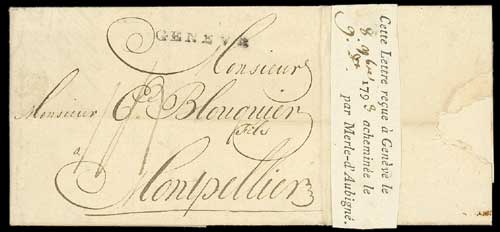 GENEVE
Monsieur
Monsieur Blouquier
fils
a
Montpellier
Cette Lettre reçue à Genève le
8. 9bre 1793 acheminée le
9. dt.
par Merle-d'Aubigné.